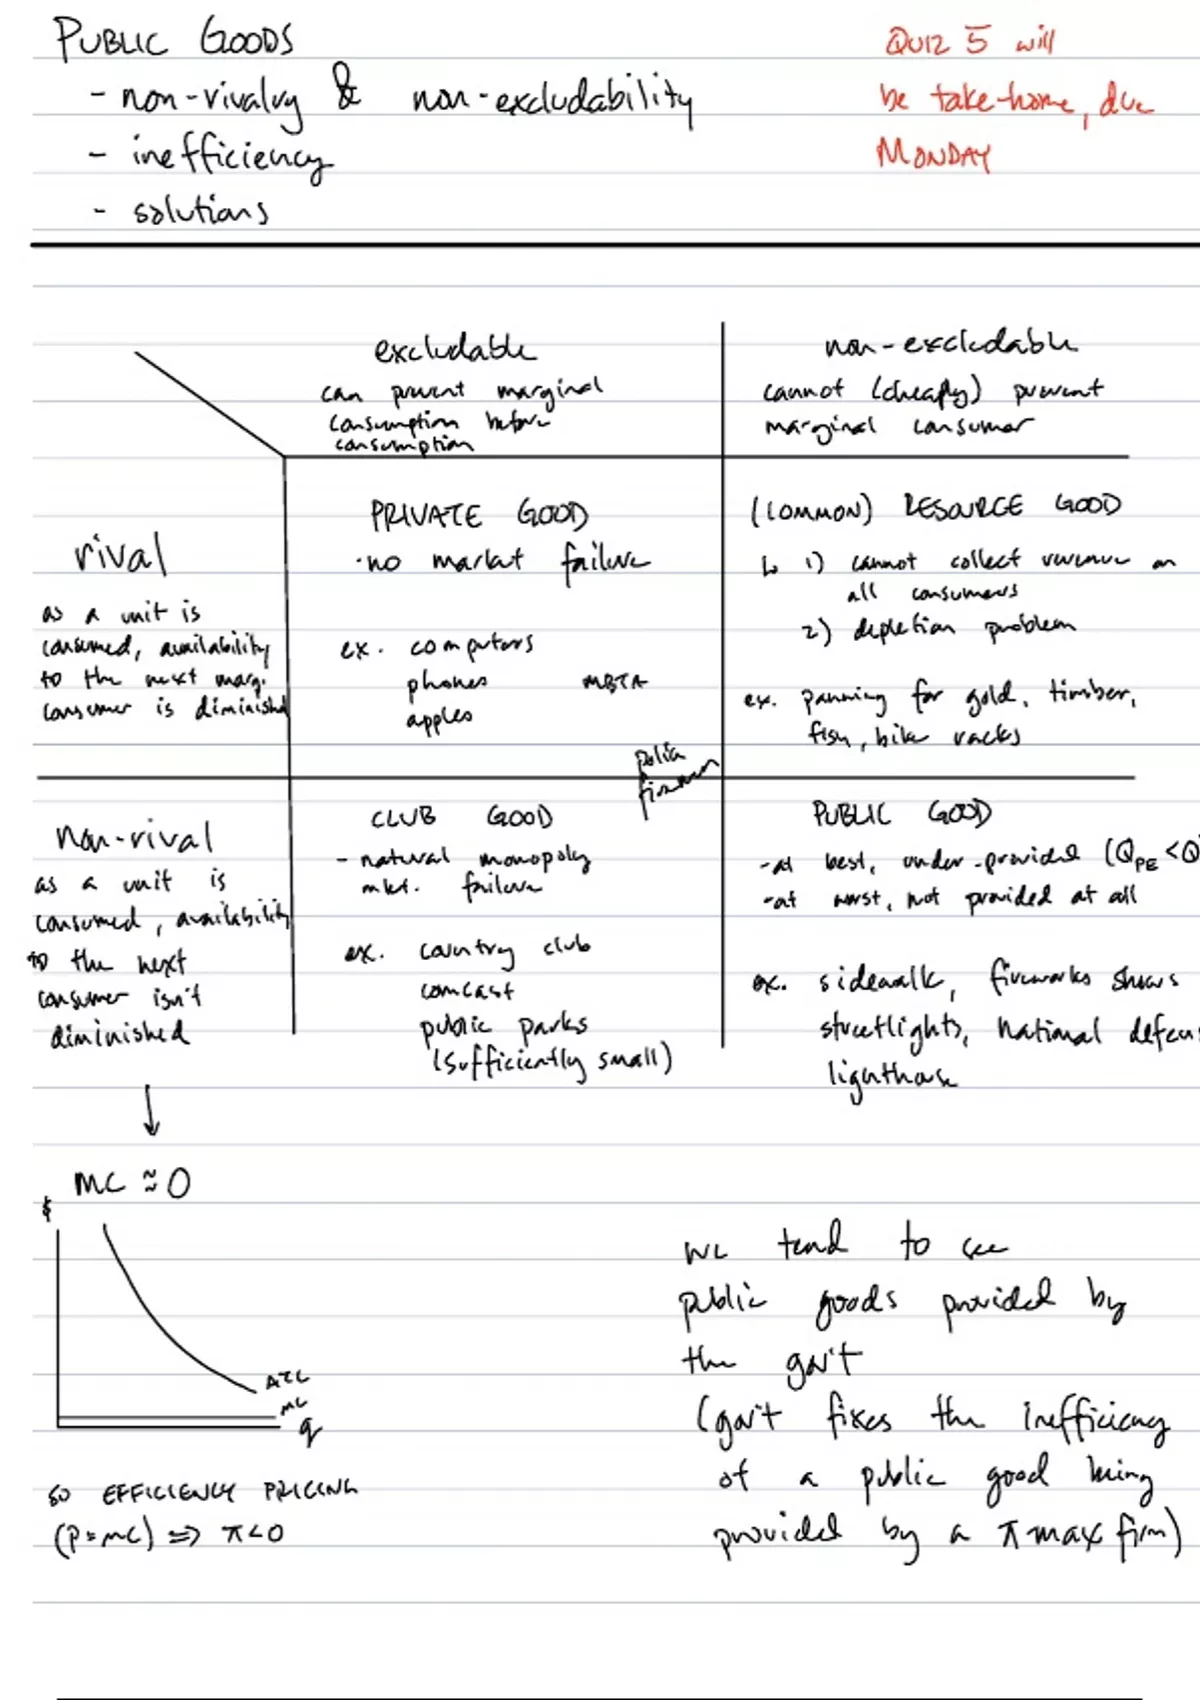 PUBLIC GOODS
- non-rivalry & non-excludability
- inefficiency
- solutions
QUIZ 5 will
be take-home, due
MONDAY
excludable
can prevent marginal
consumption before
consumption
non-excludable
cannot (cheaply) prevent
marginal consumer
rival
as a unit is
consumed, availability
to the next marg.
consumer is diminished
PRIVATE GOOD
·no market failure
ex. computers
phones
apples
MBTA
(COMMON) RESOURCE GOOD
↳ 1) cannot collect revenue on
all consumers
2) depletion problem
ex. panning for gold, timber,
fish, bike racks
police
firemen
non-rival
as a unit is
consumed, availability
to the next
consumer isn't
diminished
CLUB GOOD
- natural monopoly
mkt. failure
ex. country club
comcast
public parks
(sufficiently small)
PUBLIC GOOD
-at best, under-provided (Q_PE < Q
-at worst, not provided at all
ex. sidewalk, fireworks shows
streetlights, national defens
lighthouse
MC ≈ 0
$
ATC
MC
q
SO EFFICIENCY PRICING
(P=MC) => π<0
we tend to see
public goods provided by
the gov't
(gov't fixes the inefficiency
of a public good being
provided by a π max firm)